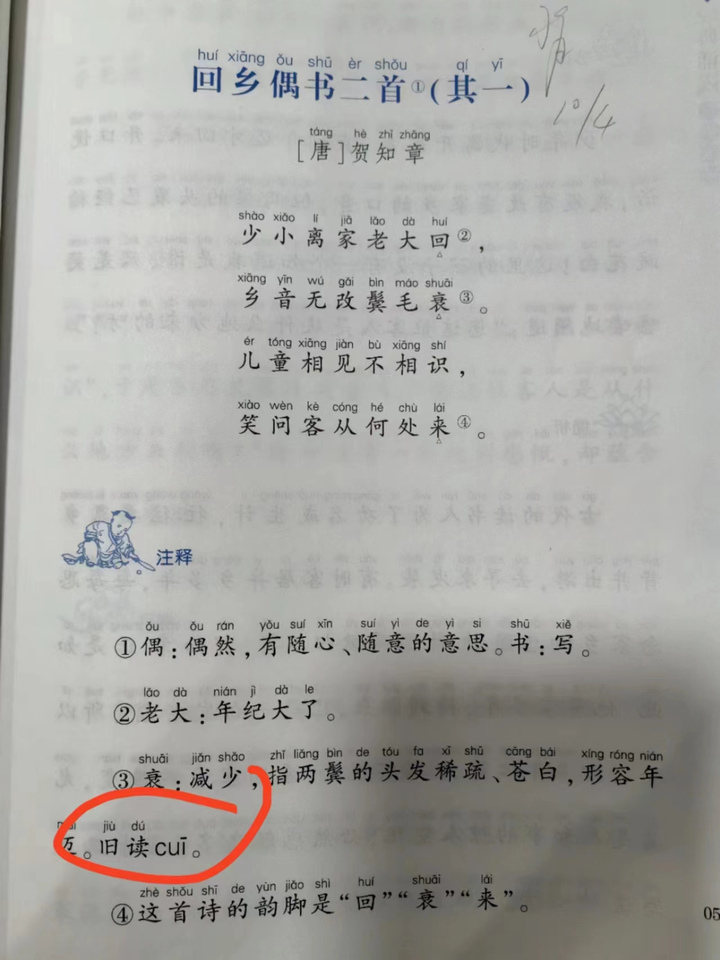 huí xiāng ǒu shū èr shǒu qí yī
回乡偶书二首①(其一)
10/4
táng hè zhī zhāng
[唐]贺知章
shào xiǎo lí jiā lǎo dà huí
少小离家老大回②，
xiāng yīn wú gǎi bìn máo shuāi
乡音无改鬓毛衰③。
ér tóng xiāng jiàn bù xiāng shí
儿童相见不相识，
xiào wèn kè cóng hé chù lái
笑问客从何处来④。
注释
ǒu ǒu rán yǒu suí xīn suí yì de yì si shū xiě
①偶：偶然，有随心、随意的意思。书：写。
lǎo dà nián jì dà le
②老大：年纪大了。
shuāi jiǎn shǎo zhǐ liǎng bìn de tóu fa xī shū cāng bái xíng róng nián
③衰：减少，指两鬓的头发稀疏、苍白，形容年
mài jiù dú
迈。旧读cuī。
zhè shǒu shī de yùn jiǎo shì huí shuāi lái
④这首诗的韵脚是“回”“衰”“来”。
05